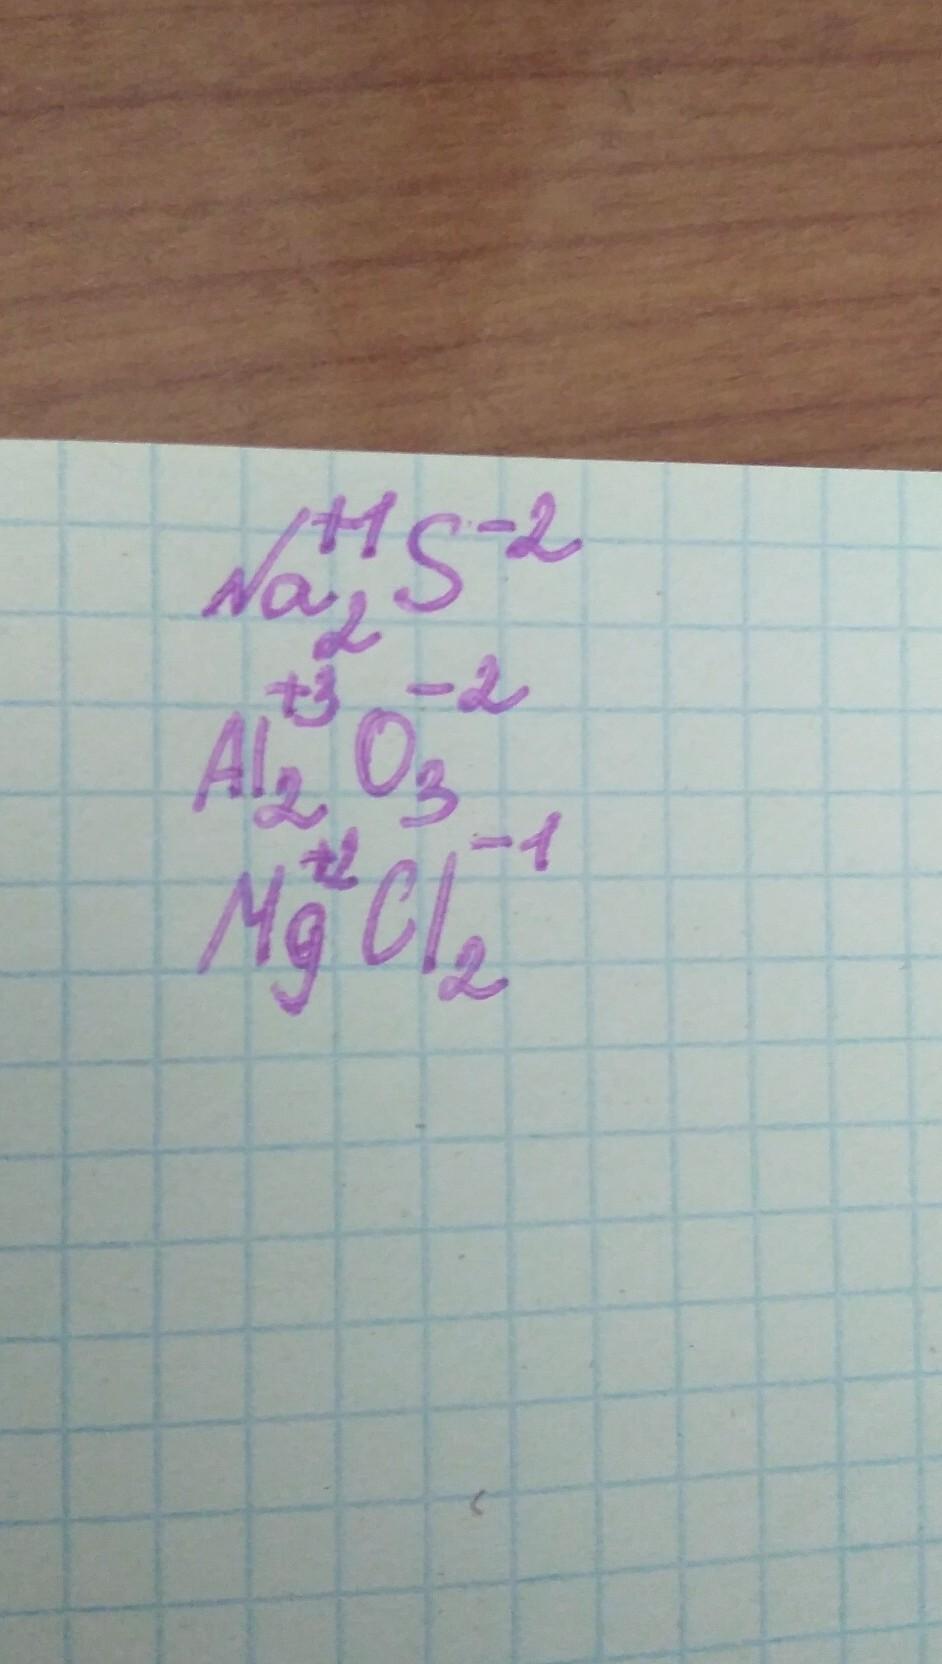 Na₂⁺¹S⁻²
Al₂⁺³O₃⁻²
Mg⁺²Cl₂⁻¹